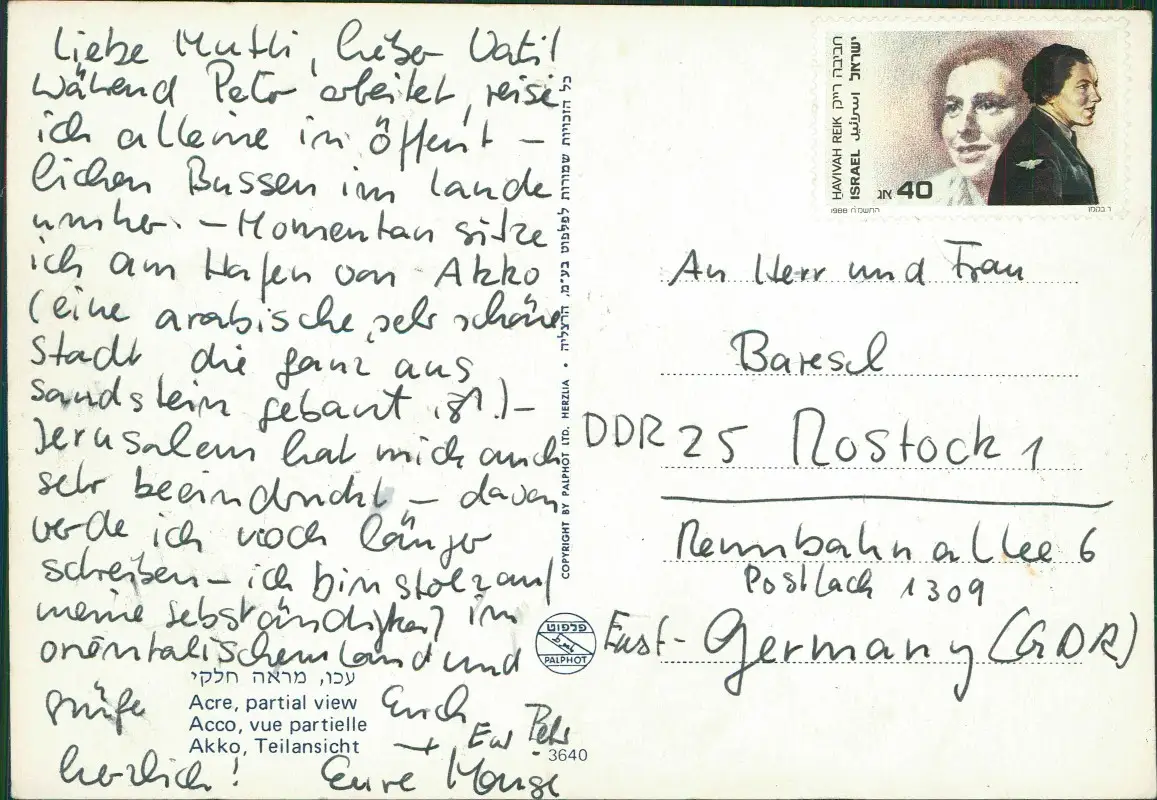 Liebe Mutti, lieber Vati!
Während Peter arbeitet, reise
ich alleine in öffent-
lichen Bussen im Lande
umher. – Momentan sitze
ich am Hafen von Akko
(eine arabische, sehr schöne
Stadt die ganz aus
Sandstein gebaut ist.) –
Jerusalem hat mich auch
sehr beeindruckt – davon
werde ich noch länger
schreiben – ich bin stolz auf
meine Selbständigkeit im
orientalischem Land und
grüße Euch
herzlich! Eure
+ Peter
עכו, מראה חלקי
Acre, partial view
Acco, vue partielle
Akko, Teilansicht
3640
כל הזכויות שמורות לפלפוט בע"מ, הרצליה • COPYRIGHT BY PALPHOT LTD. HERZLIA
פלפוט
PALPHOT
חביבה רייק HAVIVAH REIK
ישראל اسرائيل ISRAEL
אג 40
1988 התשמ"ח
An Herr und Frau
Baresel
DDR 25 Rostock 1
Rennbahnallee 6
Postfach 1309
East-Germany (GDR)